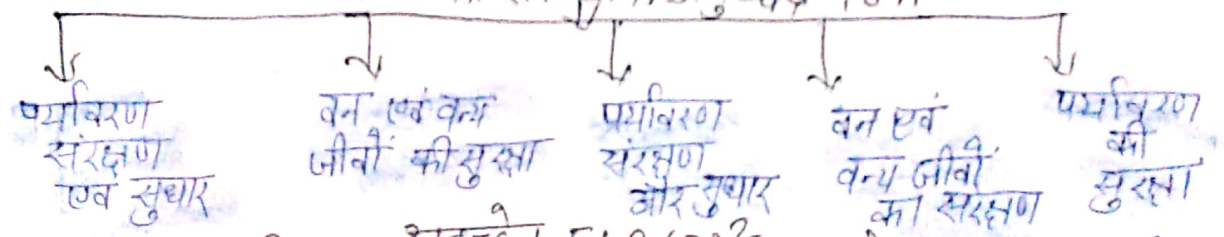 पर्यावरण
संरक्षण
एवं सुधार
वन एवं वन्य
जीवों की सुरक्षा
पर्यावरण
संरक्षण
और सुधार
वन एवं
वन्य जीवों
का संरक्षण
पर्यावरण
की
सुरक्षा